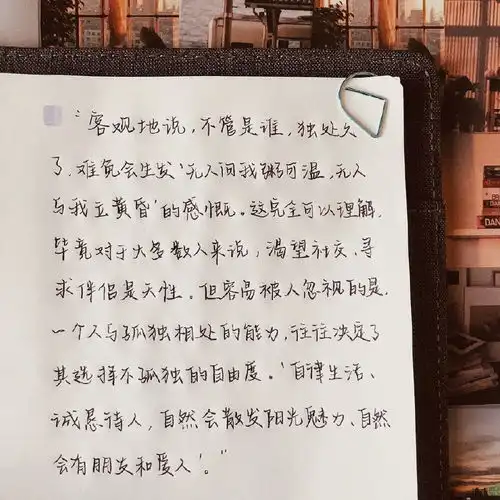 “客观地说，不管是谁，独处久
了，难免会生发‘无人问我粥可温，无人
与我立黄昏’的感慨。这完全可以理解，
毕竟对于大多数人来说，渴望社交、寻
求伴侣是天性。但容易被人忽视的是，
一个人与孤独相处的能力，往往决定了
其选择不孤独的自由度。‘自律生活、
诚恳待人，自然会散发阳光魅力、自然
会有朋友和爱人’。”